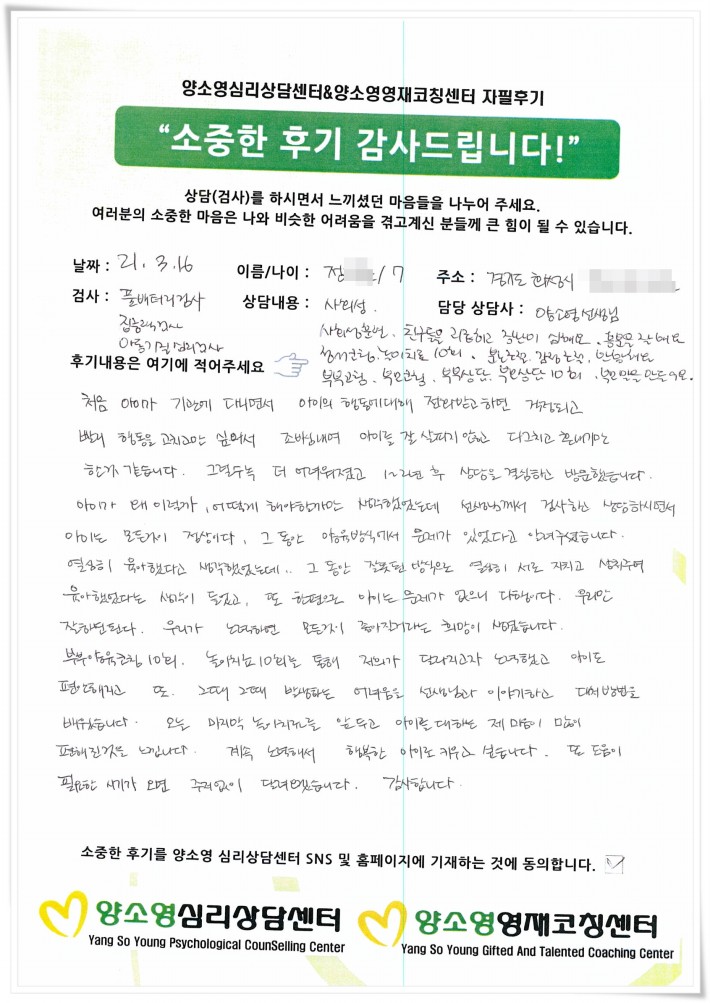 양소영심리상담센터&양소영영재코칭센터 자필후기
“소중한 후기 감사드립니다!”
상담(검사)를 하시면서 느끼셨던 마음들을 나누어 주세요.
여러분의 소중한 마음은 나와 비슷한 어려움을 겪고계신 분들께 큰 힘이 될 수 있습니다.
날짜 : 21. 3. 16 이름/나이 : 전 / 7 주소 : 경기도 화성시
검사 : 풀배터리검사 상담내용 : 사회성. 담당 상담사 : 양소영선생님
집중력검사 사회성훈련. 친구들을 괴롭히고 장난이 심해요.
아동기질심리검사 놀이치료 10회.
후기내용은 여기에 적어주세요 부부코칭. 부모코칭. 부부상담. 부모상담 10회.
처음 아이가 기관에 다니면서 아이의 행동에대해 전화받고하면 걱정되고
빨리 행동을 고치고만 싶어서 조바심내며 아이를 잘 살피지 않고 다그치고 혼내기만
한거 같습니다. 그럴수록 더 어려워졌고 1~2년 후 상담을 결심하고 방문했습니다.
아이가 왜 이런가, 어떻게 해야할까만 생각했었는데 선생님께서 검사하고 상담하시면서
아이는 모든것이 정상이다, 그 동안 양육방식에서 문제가 있었다고 알려주셨습니다.
열심히 육아했다고 생각했었는데.. 그 동안 잘못된 방식으로 열심히 서로 지치고 상처주며
육아했었다는 생각이 들었고, 또 한편으로 아이는 문제가 없으니 다행이다. 우리만
잘하면된다. 우리가 노력하면 모든것이 좋아질거라는 희망이 생겼습니다.
부부양육코칭 10회. 놀이치료 10회를 통해 저희가 달라지고자 노력했고 아이도
편안해지고 또. 그때 그때 발생하는 어려움을 선생님과 이야기하고 대처방법을
배웠습니다. 오늘 마지막 놀이치료를 앞두고 아이를 대하는 제 마음이 많이
편해진것을 느낍니다. 계속 노력해서 행복한 아이로 키우고 싶습니다. 또 도움이
필요한 시기가 오면 주저없이 달려오겠습니다. 감사합니다.
소중한 후기를 양소영 심리상담센터 SNS 및 홈페이지에 기재하는 것에 동의합니다.
양소영심리상담센터 양소영영재코칭센터
Yang So Young Psychological CounSelling Center Yang So Young Gifted And Talented Coaching Center